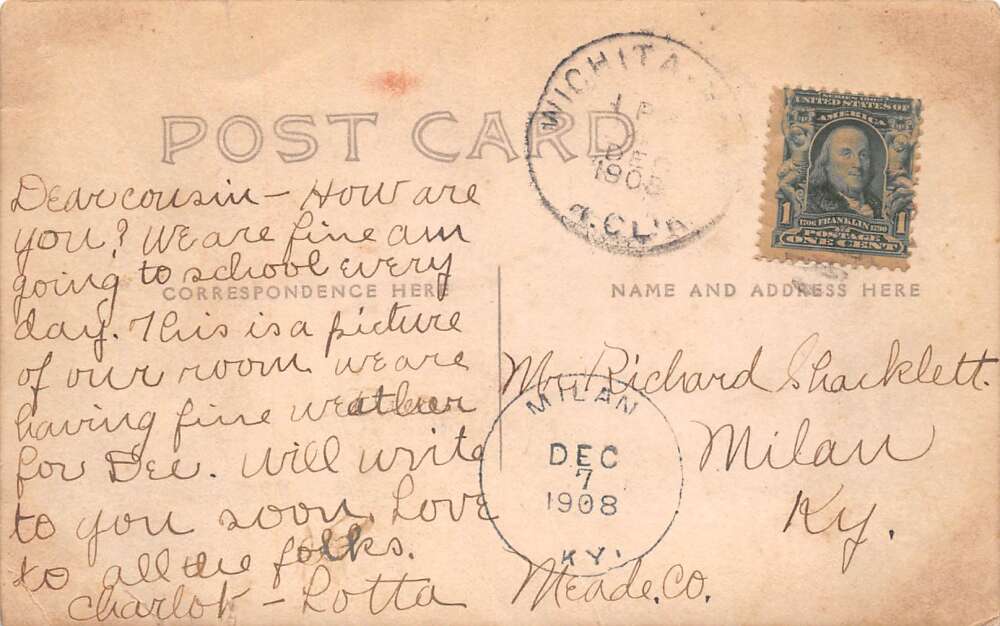 POST CARD
WICHITA
1 P
DEC
1908
REC'D.
SERIES 1902
UNITED STATES OF
AMERICA
1 1
1706 FRANKLIN 1790
POSTAGE
ONE CENT
CORRESPONDENCE HERE
NAME AND ADDRESS HERE
Dear cousin — How are
you? We are fine am
going to school every
day. This is a picture
of our room we are
having fine weather
for Dec. Will write
to you soon. Love
to all the folks.
Charlot - Lotta
Mr. Richard Shacklett.
Milan
Ky.
Meade. Co.
MILAN
DEC
7
1908
KY.